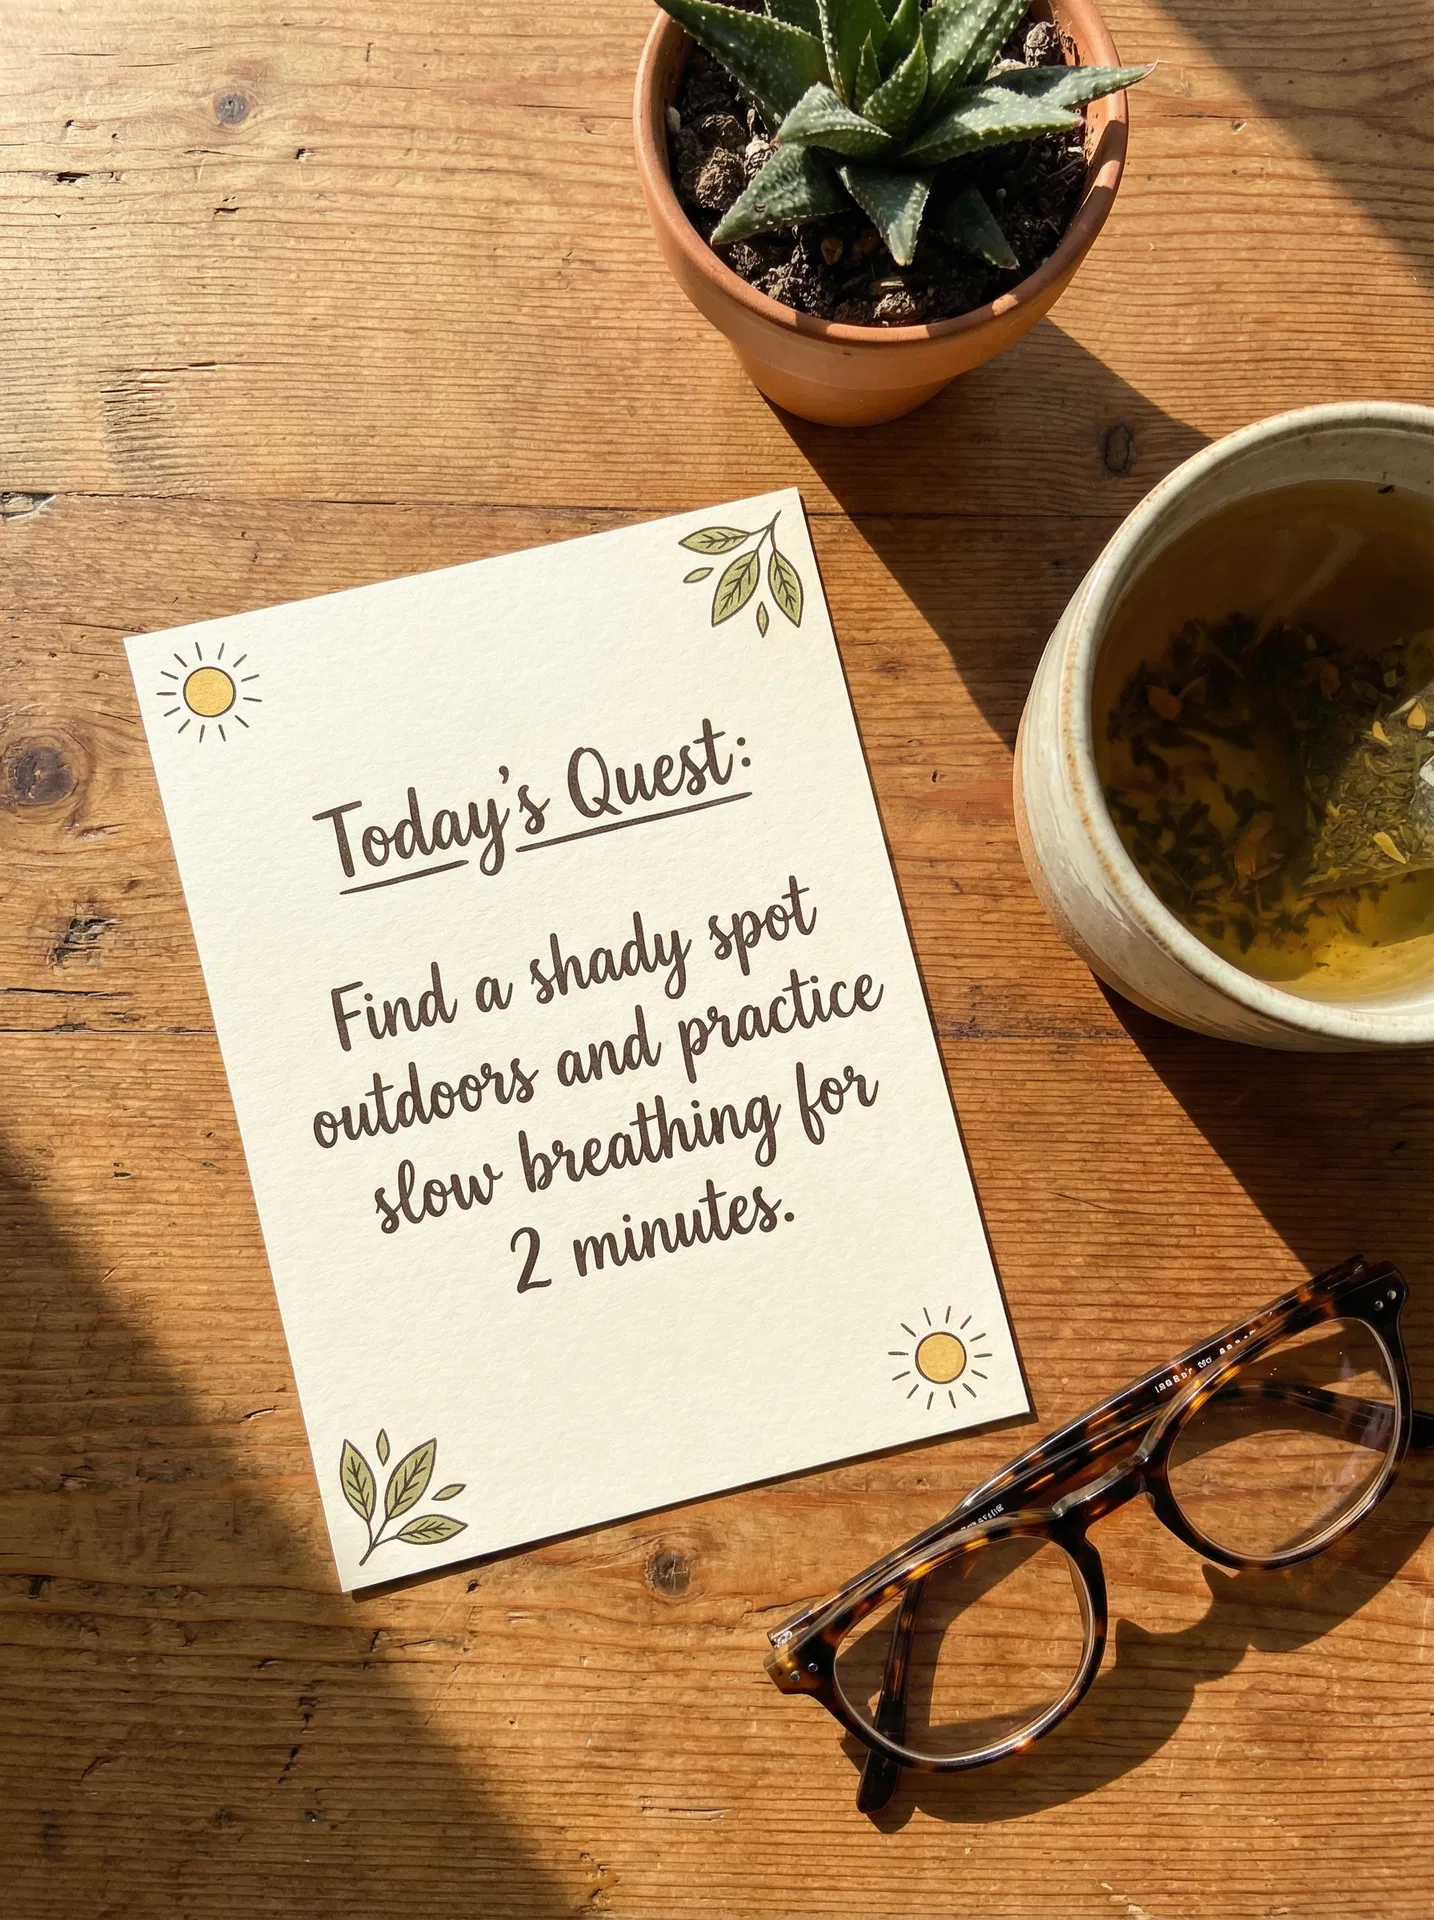 Today's Quest:
Find a shady spot
outdoors and practice
slow breathing for
2 minutes.